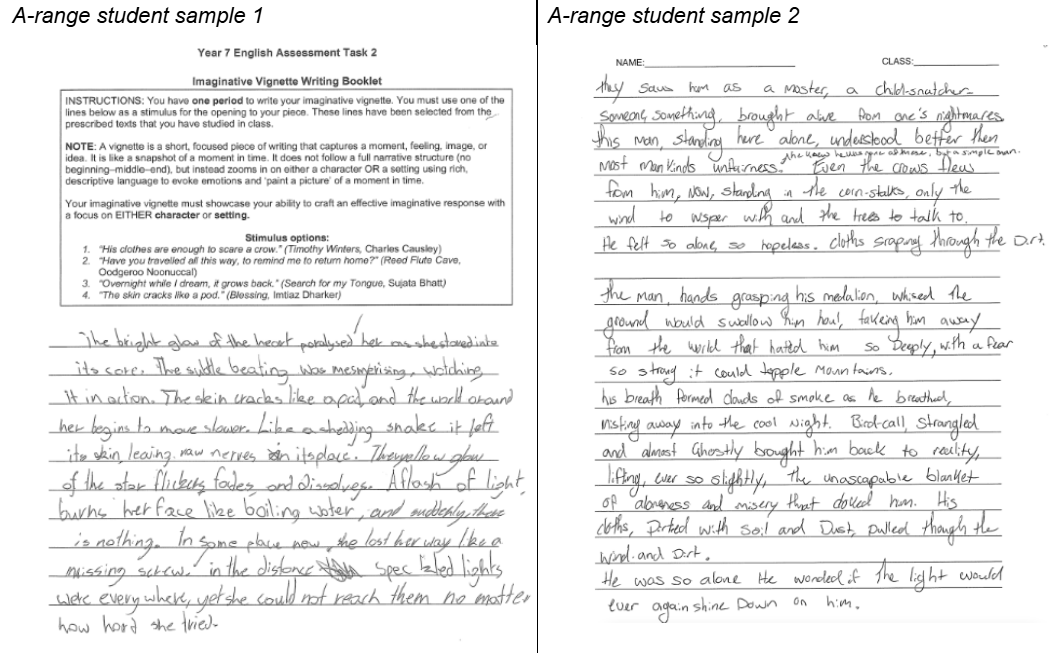 A-range student sample 1
Year 7 English Assessment Task 2
Imaginative Vignette Writing Booklet
INSTRUCTIONS: You have one period to write your imaginative vignette. You must use one of the
lines below as a stimulus for the opening to your piece. These lines have been selected from the
prescribed texts that you have studied in class.
NOTE: A vignette is a short, focused piece of writing that captures a moment, feeling, image, or
idea. It is like a snapshot of a moment in time. It does not follow a full narrative structure (no
beginning–middle–end), but instead zooms in on either a character OR a setting using rich,
descriptive language to evoke emotions and 'paint a picture' of a moment in time.
Your imaginative vignette must showcase your ability to craft an effective imaginative response with
a focus on EITHER character or setting.
Stimulus options:
1. "His clothes are enough to scare a crow." (Timothy Winters, Charles Causley)
2. "Have you travelled all this way, to remind me to return home?" (Reed Flute Cave,
Oodgeroo Noonuccal)
3. "Overnight while I dream, it grows back." (Search for my Tongue, Sujata Bhatt)
4. "The skin cracks like a pod." (Blessing, Imtiaz Dharker)
The bright glow of the heart paralysed her as she stared into
its core. The sudtle beating was mesmerising, watching
it in action. The skin cracks like a pod and the world around
her begins to move slower. Like a shedding snake it left
its skin, leaving raw nerves in its place. The yellow glow
of the star flickers, fades and dissolves. A flash of light,
burns her face like boiling water, and suddenly, there
is nothing. In some place new, she lost her way like a
missing screw. in the distance speckled lights
were everywhere, yet she could not reach them no matter
how hard she tried.
A-range student sample 2
NAME: CLASS:
they saw him as a moster, a child-snatcher-
someone, something, brought alive from one's nightmares
this man, standing here alone, understood better then
most mankinds unfairness. he knew he was none of these, but a simple man. Even the crows flew
from him, Now, standing in the corn-stalks, only the
wind to wsper with and the trees to talk to.
He felt so alone, so hopeless. cloths scraping through the Dirt.
the man, hands grasping his medalion, whised the
ground would swallow him houl, takeing him away
from the world that hatted him so Deeply, with a fear
so strong it could topple Mountains.
his breath formed clouds of smoke as he breathed,
misting away into the cool night. Bird-call, strangled
and almost Ghostly brought him back to reality,
lifting, ever so slightly, the unascapable blanket
of aloneness and misery that cloked him. His
cloths, Dirted with soil and Dust, pulled though the
wind and Dirt.
He was so alone He wonded if the light would
ever again shine Down on him.